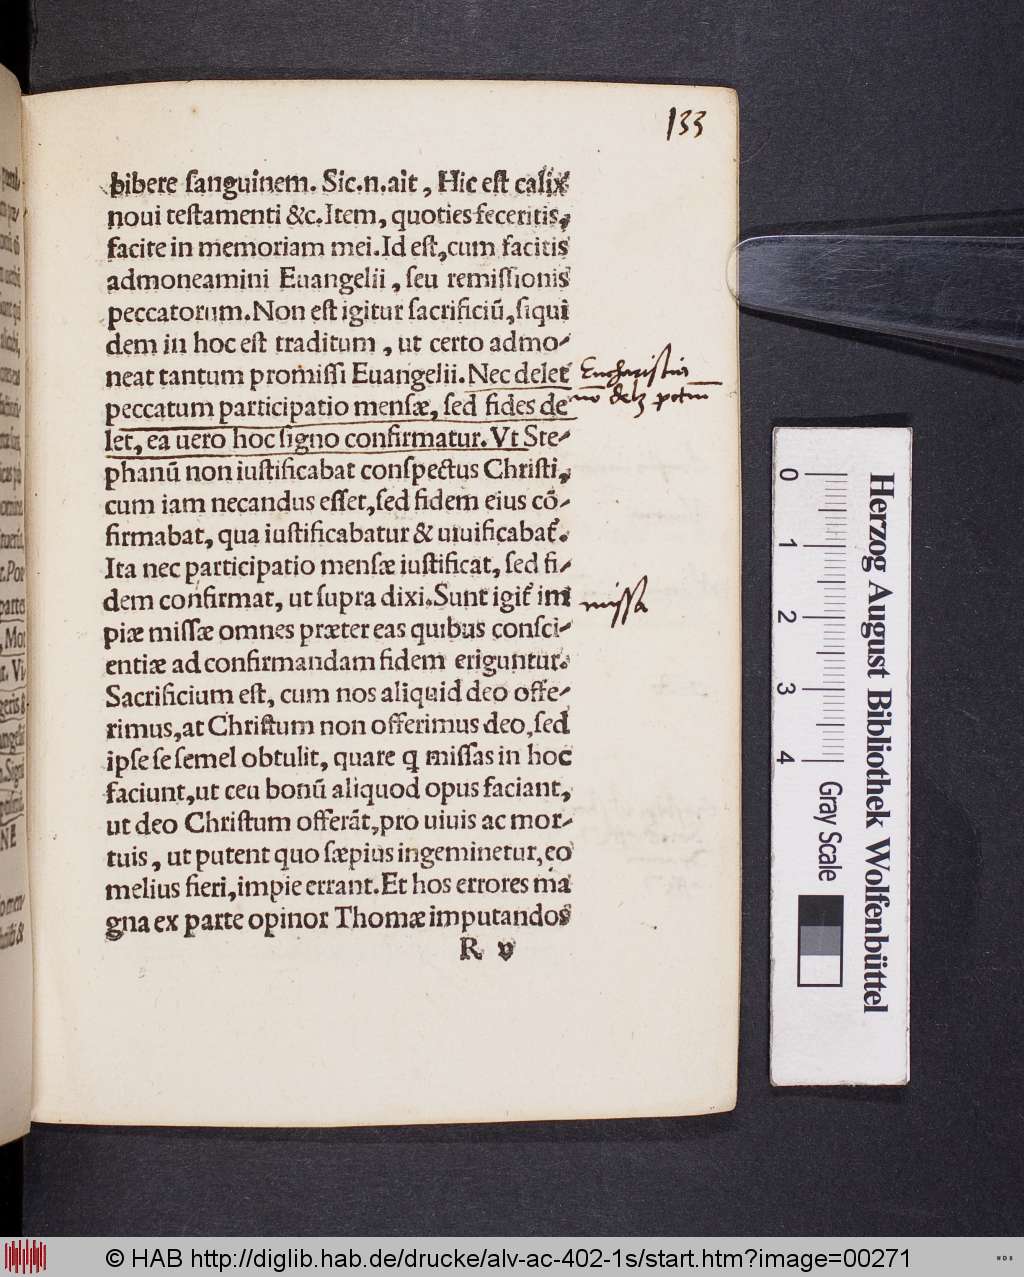 133
bibere ſanguinem. Sic.n.ait, Hic eſt calix
noui teſtamenti &c.Item, quoties feceritis,
facite in memoriam mei.Id eſt,cum facitis
admoneamini Euangelii, ſeu remiſſionis
peccatorum.Non eſt igitur ſacrificiū,ſiqui
dem in hoc eſt traditum, ut certo admo-
neat tantum promiſſi Euangelii.Nec delet
peccatum participatio menſæ, ſed fides de
let, ea uero hoc ſigno confirmatur. Vt Ste-
phanū non iuſtificabat conſpectus Chriſti,
cum iam necandus eſſet,ſed fidem eius cō-
firmabat, qua iuſtificabatur & uiuificabat̃.
Ita nec participatio menſæ iuſtificat, ſed fi-
dem confirmat, ut ſupra dixi.Sunt igit̃ im
piæ miſſæ omnes præter eas quibus conſci-
entiæ ad confirmandam fidem eriguntur.
Sacrificium eſt, cum nos aliquid deo offe-
rimus,at Chriſtum non offerimus deo,ſed
ipſe ſe ſemel obtulit, quare q miſſas in hoc
faciunt,ut ceu bonū aliquod opus faciant,
ut deo Chriſtum offerāt,pro uiuis ac mor-
tuis, ut putent quo ſæpius ingeminetur,eo
melius fieri,impie errant.Et hos errores ma
gna ex parte opinor Thomæ imputandos
R v
Eucharistia
missa
0 1 2 3 4
Gray Scale
Herzog August Bibliothek Wolfenbüttel
© HAB http://diglib.hab.de/drucke/alv-ac-402-1s/start.htm?image=00271